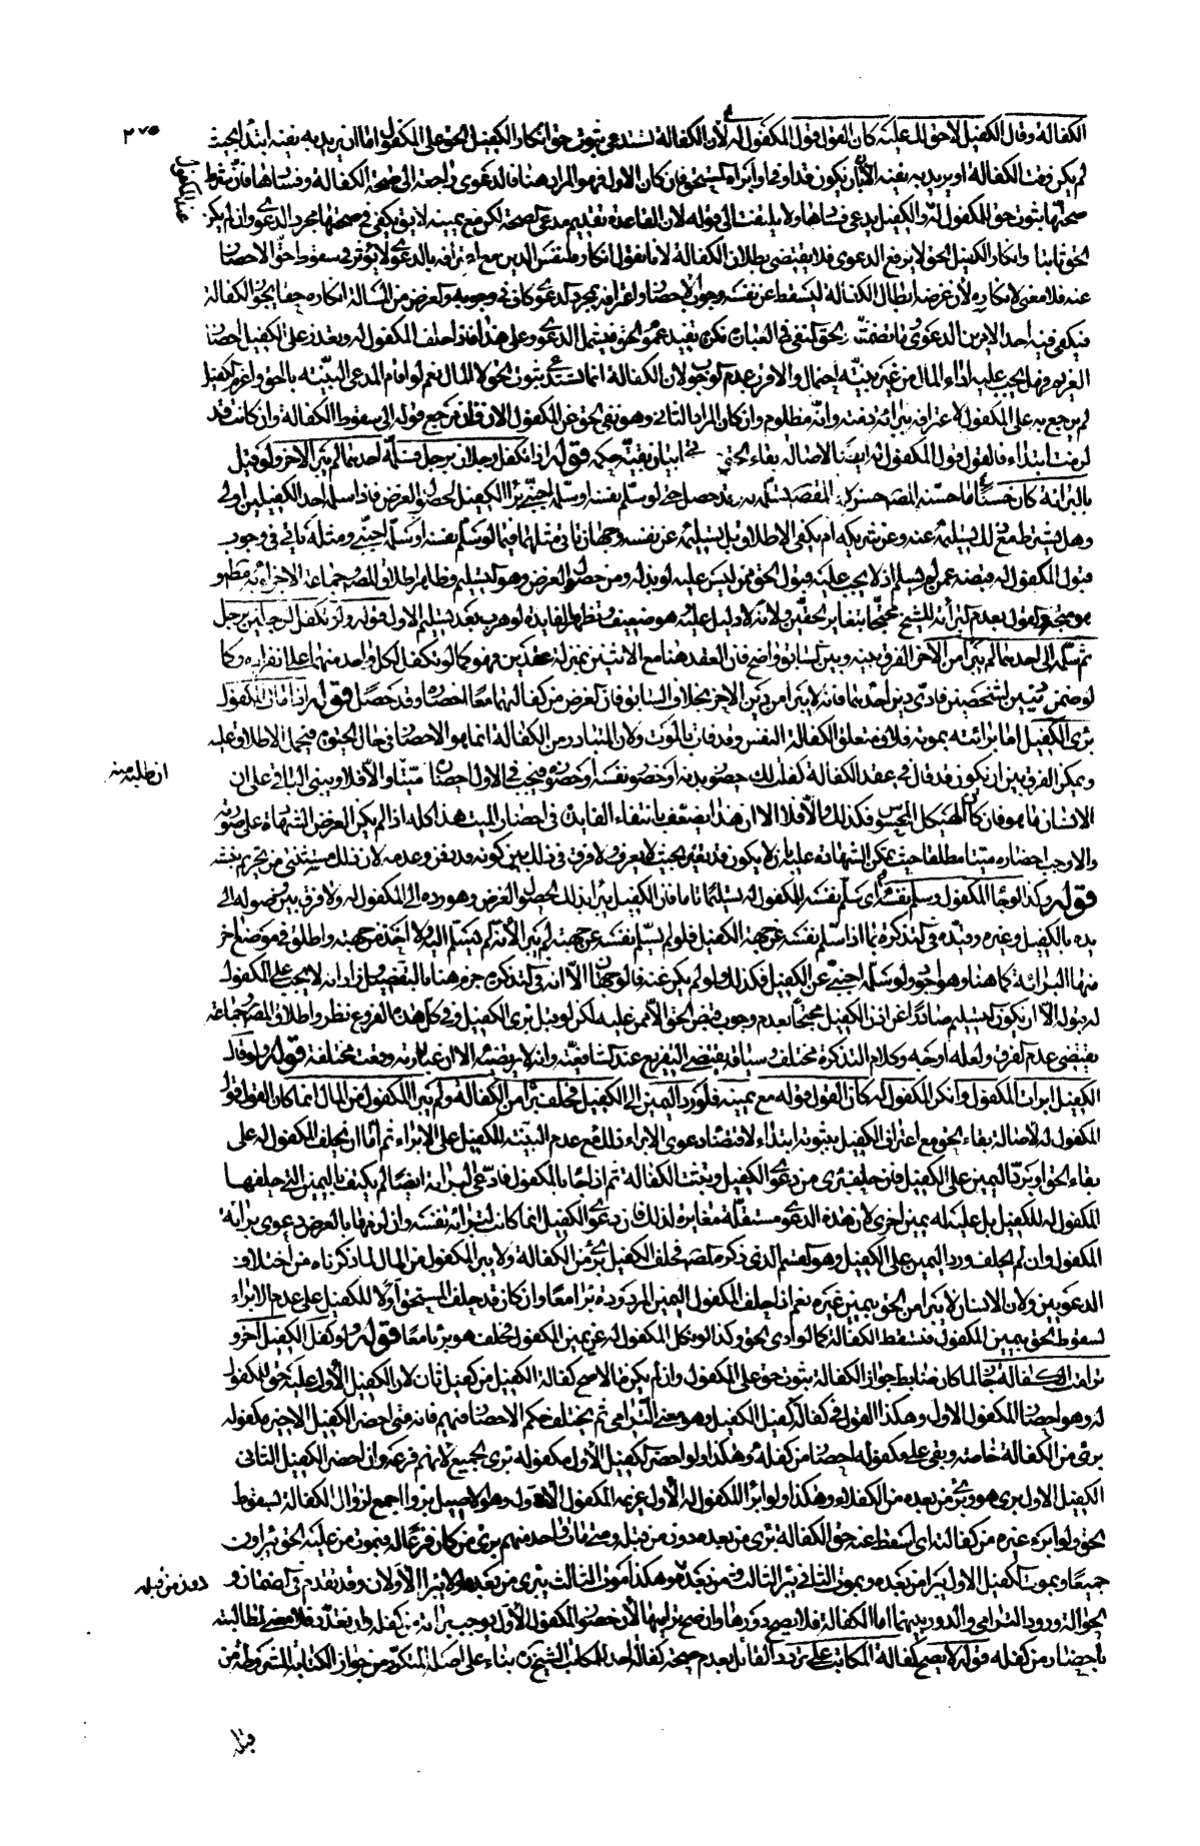 ٢٧٥
الكفالة وقال الكفيل لا حق لك عليه كان القول قول المكفول له لأن الكفالة تستدعي ثبوت حق انكار الكفيل الحق على المكفول اما ان يريد به نفيه ابتداء بحيث
لم يكن وقت الكفالة او يريد به نفيه الآن بان يكون قد اوفى او ابراه المستحق فان كان الاول فهو المراد هنا فالدعوى راجعة الى صحة الكفالة وفسادها فان شرط
صحتها ثبوت حق المكفول له والكفيل يدعي فسادها ولا يلتفت الى قوله لان القاعدة تقديم مدعي الصحة لكن مع يمينه لا يق يكفي في صحتها مجرد الدعوى وان لم يكن
الحق ثابتا وانكار الكفيل الحق لا يرفع الدعوى فلا يقتضي بطلان الكفالة لانا نقول انكاره لنفس الدين مع اعترافه بالدعوى لا يؤثر في سقوط حق الاحضار
عنه فلا معنى لانكاره لأن غرضه ابطال الكفالة ليسقط عن نفسه وجوب الاحضار واعترافه بمجرد الدعوى كاف في وجوبه والغرض من المسالة انكاره حقا يجوز الكفالة
فيكفي فيه احد الامرين الدعوى وما تضمنته الحق المنفي في العبارة نكرة تفيد عموم الحق فيشمل الدعوى وعلى هذا فاذا حلف المكفول له وتعذر على الكفيل احضار
الغريم فهل يجب عليه اداء المال من غير بينة احتمال والاقرب عدم الوجوب لان الكفالة انما تستدعي ثبوت الحق لا المال نعم لو اقام المدعي البينة بالحق واغرم الكفيل
لم يرجع به على المكفول لاعترافه ببرائة ذمته وانه مظلوم وان كان المراد الثاني وهو نفي الحق عن المكفول الان فان مرجع قوله الى سقوط الكفالة وان كانت قد
لزمت ابتداء فالقول قول المكفول له ايضا لاصالة بقاء الحق قوله اذا تكفل رجلان برجل فسلمه احدهما لم يبرا الاخر ولو قيل
بالبرائة كان حسنا ما حسنه المصنف حسن لان المقصود تسليمه وقد حصل حتى لو سلم نفسه او سلمه اجنبي برا الكفيل لحصول الغرض فاذا سلمه احد الكفيلين اولى
وهل يشترط مع ذلك تسليمه عنه وعن شريكه ام يكفي الاطلاق بل تسليمه عن نفسه وجهان تاتي مثلهما فيما لو سلم نفسه او سلمه اجنبي ومثله ياتي في وجوب
قبول المكفول له قبضه عمن لم يسلم اذ لا يجب عليه قبول الحق ممن ليس عليه لو بذله ومن حصول الغرض وهو التسليم وظاهر اطلاق المصنف وجماعة الاجتزاء به مطلقا وهو
متجه والقول بعدم البرائة للشيخ محتجا بتغاير الحقين ولانه لا دليل عليه وهو ضعيف وتظهر الفايدة لو هرب بعد تسليم الاول قوله ولو تكفل لرجلين برجل
ثم سلمه الى احدهما لم يبرا من الاخر الفرق بينه وبين السابق واضح فان العقد هنا مع الاثنين بمنزلة عقدين فهو كما لو تكفل لكل واحد منهما على انفراده وكما
لو ضمن دينين لشخصين فادى دين احدهما فانه لا يبرا من دين الاخر بخلاف السابق فان الغرض من كفالتهما معا احضاره وقد حصل قوله اذا مات المكفول
برئ الكفيل اما برائته بموته فلان متعلق الكفالة النفس وقد فات بالموت ولان المتبادر من الكفالة انما هو الاحضار في حال الحيوة فيحمل الاطلاق عليه
ويمكن الفرق بين ان يكون قد قال في عقد الكفالة كفلت لك حضور بدنه او حضور نفسه او حضوره فيجب في الاول احضاره ميتا والا فلا ويبنى الباقي على ان
الانسان ما هو فان كان الهيكل المحسوس فكذلك والا فلا الا ان هذا يضعف بانتفاء الفايدة في احضار الميت هذا كله اذا لم يكن الغرض الشهادة على صورته
والا وجب احضاره ميتا مطلقا حيث يمكن الشهادة عليه بان لا يكون قد تغير بحيث لا يعرف ولا فرق في ذلك بين كونه قد دفن وعدمه لان ذلك مستثنى من تحريم نبشه
قوله وكذا لو جاء المكفول وسلم نفسه اي سلم نفسه للمكفول له تسليما تاما فان الكفيل يبرا بذلك لحصول الغرض وهو رده الى المكفول له ولا فرق بين حصوله الى
يده بالكفيل وغيره وقيده في التذكرة بما اذا سلم نفسه عن جهة الكفيل فلو لم يسلم نفسه عن جهته لم يبرا لأنه لم يسلمه اليه ولا احد من جهته واطلق في موضع اخر
منها البرائة كما هنا وهو اجود ولو سلمه اجنبي عن الكفيل فكذلك ولو لم يكن عنه فالوجهان الا انه في التذكرة جزم هنا بالتفصيل وزاد انه لا يجب على المكفول
له قبوله الا ان يكون التسليم صادرا عن اذن الكفيل محتجا بعدم وجوب قبض الحق الا ممن عليه لكن لو قبل برئ الكفيل وفي كل هذه الفروع نظر واطلاق المصنف وجماعة
يقتضي عدم الفرق ولعله اوجه وكلام التذكرة مختلف وسياقه يقتضي التفريع عند الشافعية وانه لا يرتضيه الا ان عبارته وقعت مختلفة قوله ولو قال
الكفيل ابرات المكفول وانكر المكفول له كان القول قوله مع يمينه فلو رد اليمين الى الكفيل فحلف برا من الكفالة ولم يبرا المكفول من المال انما كان القول قول
المكفول له لاصالة بقاء الحق مع اعتراف الكفيل بثبوته ابتداء لاقتضاء دعوى الابراء ذلك مع عدم البينة للكفيل على الابراء ثم اما ان يحلف المكفول له على
بقاء الحق او يرد اليمين على الكفيل فان حلف برئ من دعوى الكفيل وثبتت الكفالة ثم اذا جاء بالمكفول فادعى البرائة ايضا لم يكتف باليمين التي حلفها
المكفول له للكفيل بل عليه له يمين اخرى لان هذه الدعوى مستقلة مغايرة لذلك فان دعوى الكفيل انما كانت لبرائة نفسه وان لزمها بالعرض دعوى برائة
المكفول وان لم يحلف ورد اليمين على الكفيل وهو القسم الذي ذكره المصنف فحلف الكفيل برئ من الكفالة ولا يبرا المكفول من المال لما ذكرناه من اختلاف
الدعويين ولان الانسان لا يبرا من الحق بيمين غيره نعم اذا حلف المكفول اليمين المردودة برءا معا وان كان قد حلف المستحق اولا للكفيل على عدم الابراء
لسقوط الحق بيمين المكفول فتسقط الكفالة كما لو ادى الحق وكذا لو نكل المكفول له عن يمين المكفول فحلف هو برئا معا قوله ولو كفل الكفيل آخر و
ترامت الكفالة جاز لما كان ضابط جواز الكفالة ثبوت حق على المكفول وان لم يكن مالا صح كفالة الكفيل من كفيل ثان لان الكفيل الأول عليه حق للمكفول
له وهو احضار المكفول الاول وهكذا القول في كفالة كفيل الكفيل وهو معنى الترامي ثم يختلف حكم الاحضار فيهم فانه متى احضر الكفيل الاخير مكفوله
برئ من الكفالة خاصة وبقي على مكفوله احضار من كفله وهكذا ولو احضر الكفيل الأول مكفوله برئ الجميع لانهم فرعه وان احضر الكفيل الثاني
الكفيل الاول برئ هو وبرئ من بعده من الكفلاء وهكذا ولو ابرا المكفول له الأول غريمه المكفول الاول وهو الاصيل برؤا اجمع لزوال الكفالة لسقوط
الحق ولو ابرء غيره من كفالته اي اسقط عنه حق الكفالة برئ من بعده دون من قبله ومتى مات واحد منهم برئ من كان فرعا له فبموت من عليه الحق يبراون
جميعا وبموت الكفيل الاول يبرا من بعده وبموت الثاني يبرا الثالث فمن بعده وهكذا وبموت الثالث يبرئ من بعده ولا يبرا الأولان وقد تقدم في الضمان و
الحوالة ورود الترامي والدور بينهما اما الكفالة فلا يصح دورها وان صح تراميها لأن حضور المكفول الاول يوجب برائة من كفله وان تعدد فلا معنى لمطالبته
باحضار من كفله قوله لا يصح كفالة المكاتب على تردد القائل بعدم صحة كفالة احد للمكاتب الشيخ ره بناء على اصله المتكرر من جواز الكتابة المشروطة من
ان طلبه منه
دون من قبله
قبله